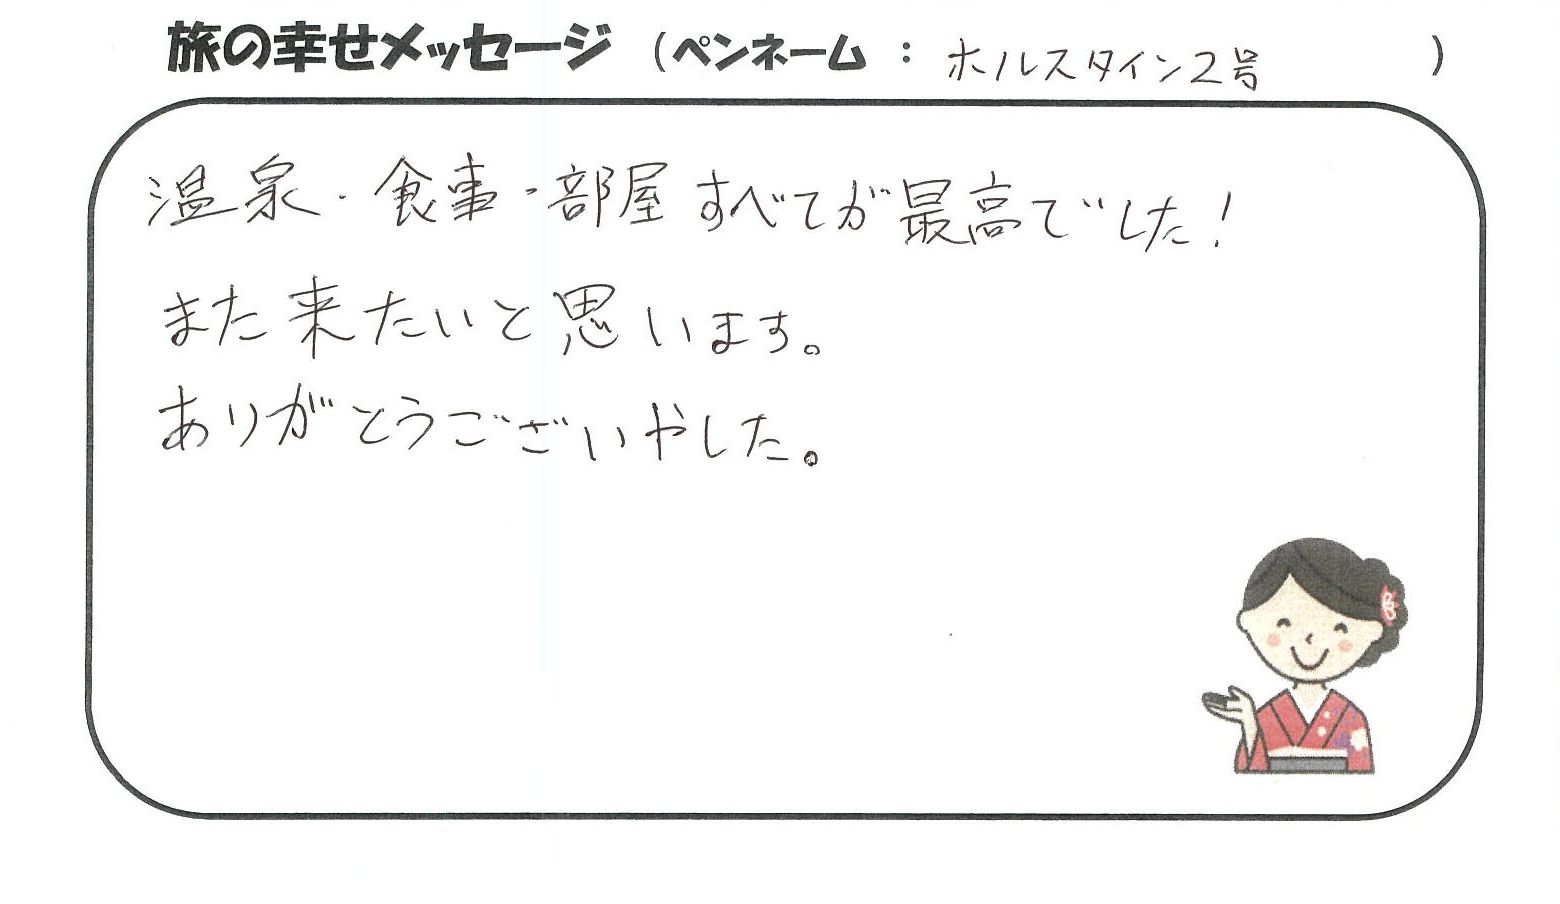 旅の幸せメッセージ (ペンネーム : ホルスタイン2号 )
温泉・食事・部屋すべてが最高でした!
また来たいと思います。
ありがとうございやした。